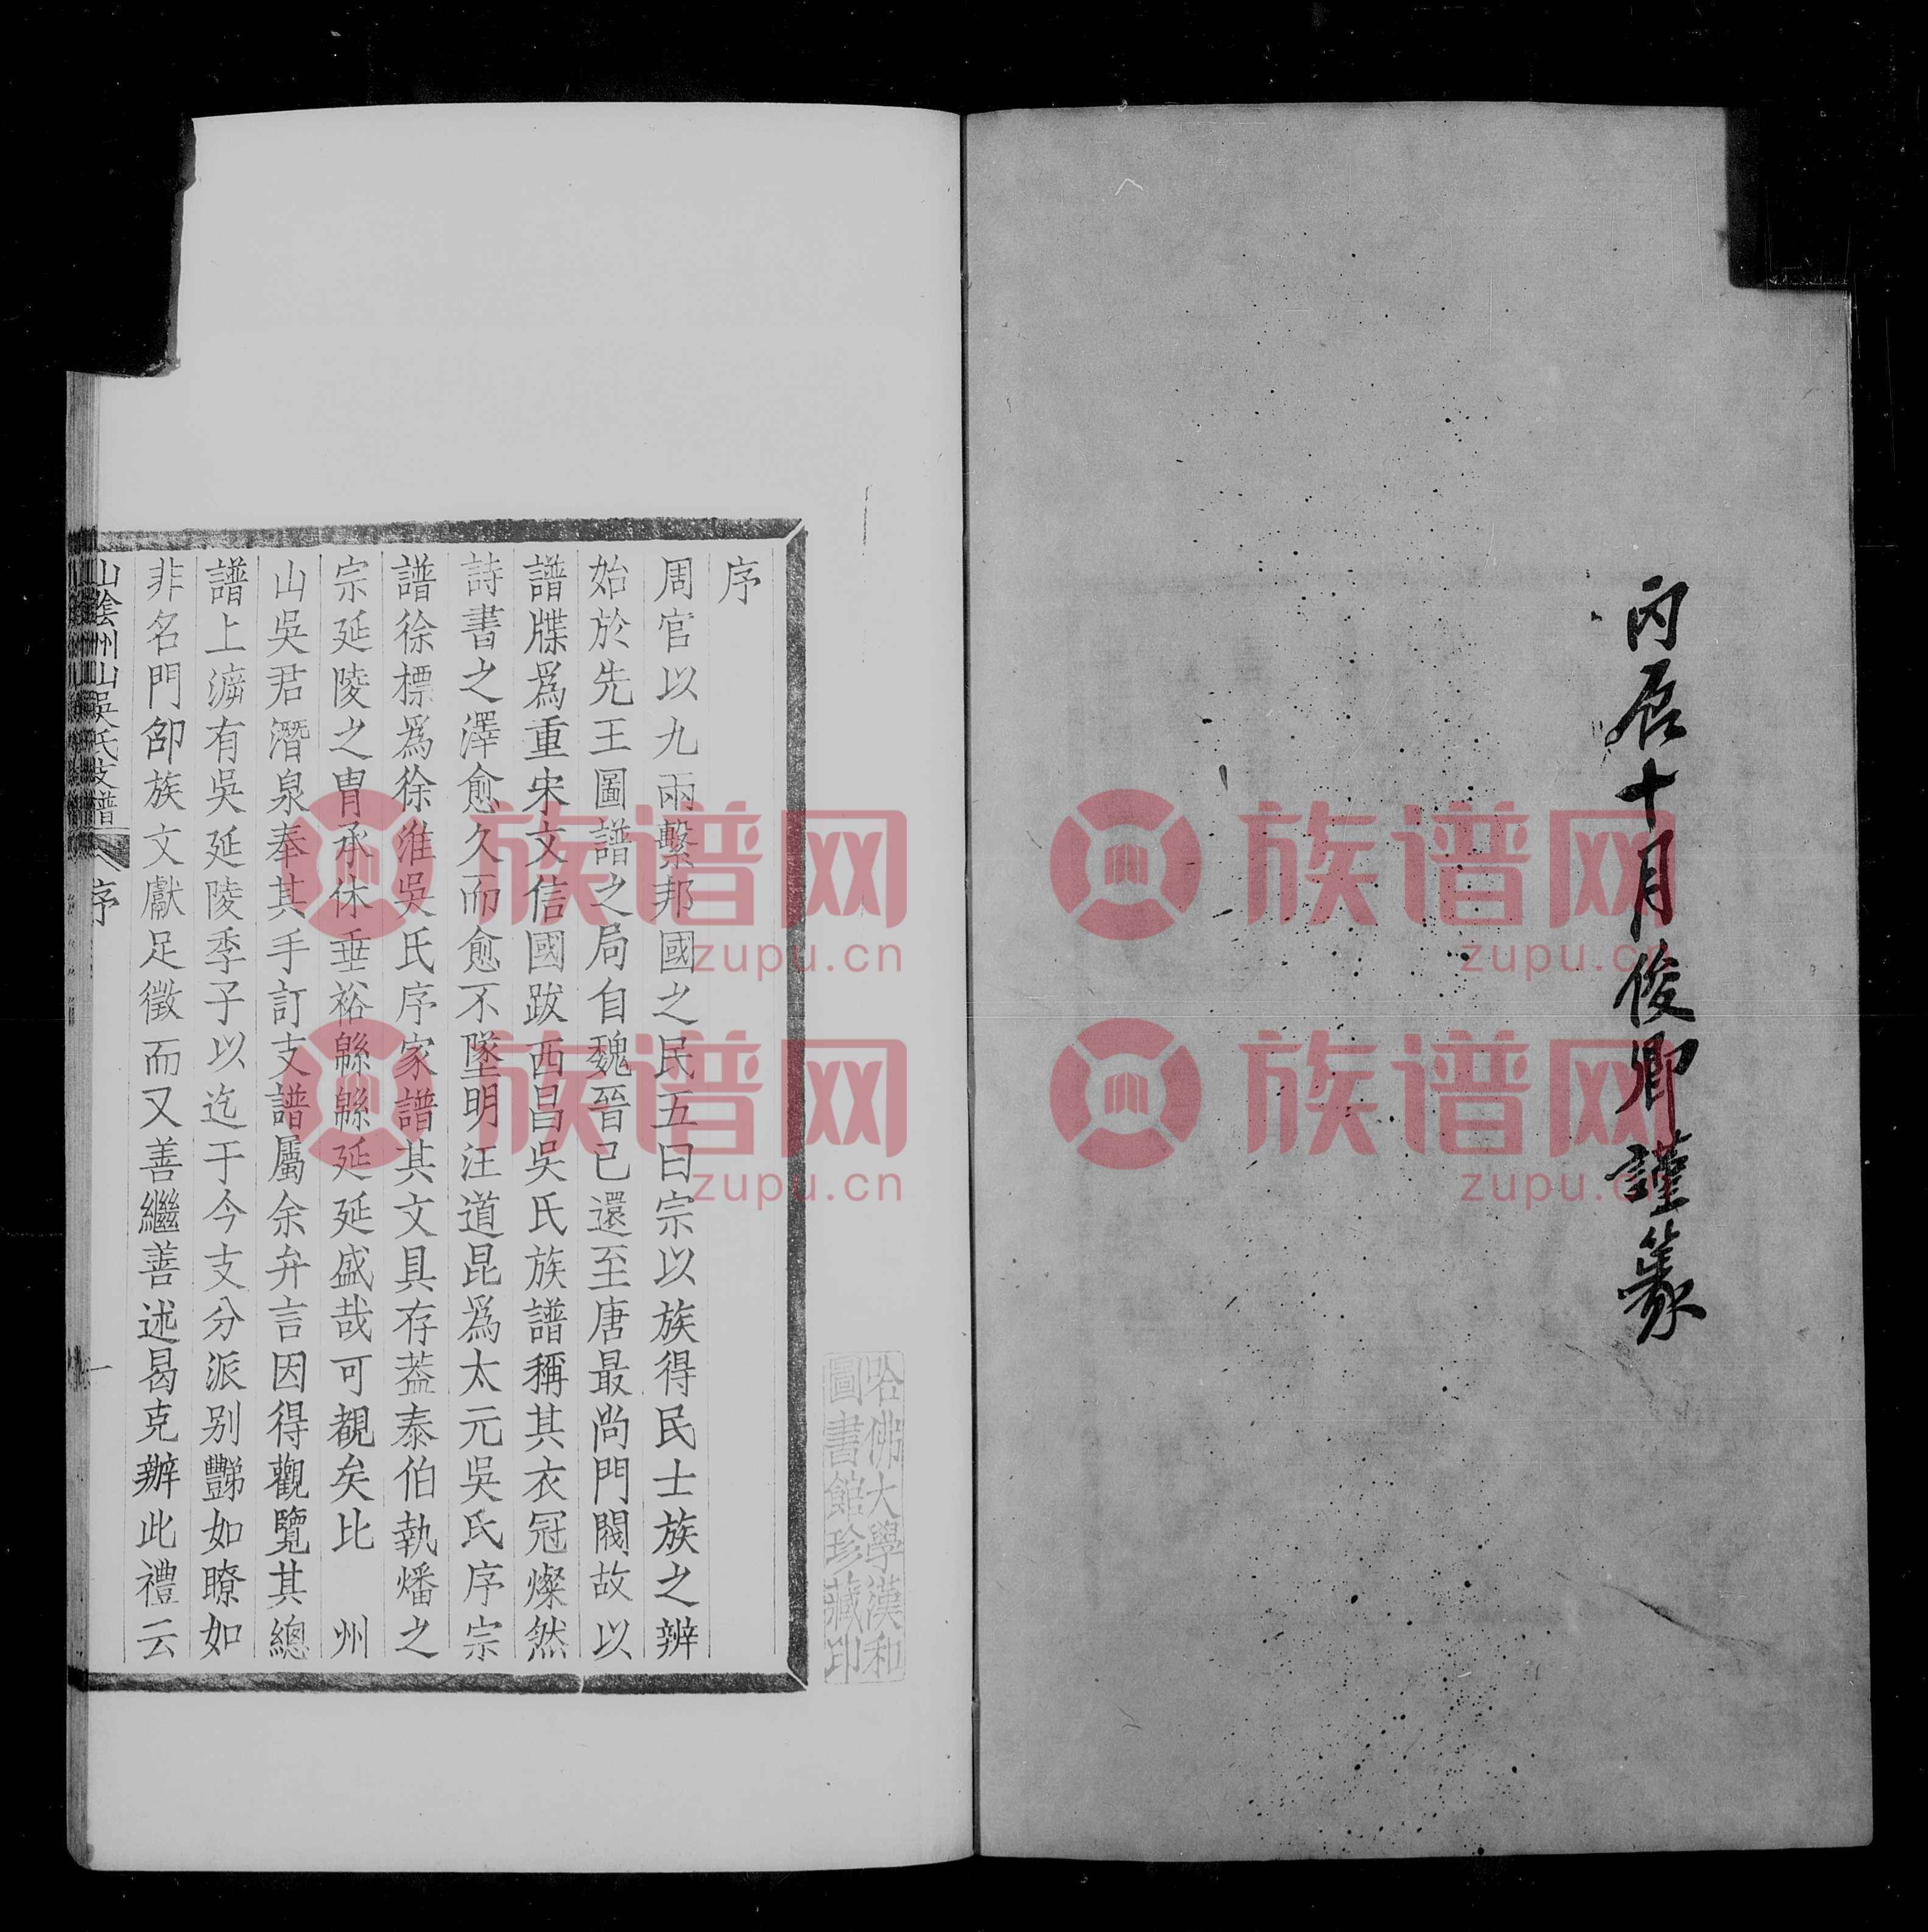 丙辰十月俊卿謹篆
序
周官以九兩繫邦國之民五曰宗以族得民士族之辨
始於先王圖譜之局自魏晉已還至唐最尚門閥故以
譜牒爲重宋文信國跋西昌吳氏族譜稱其衣冠燦然
詩書之澤愈久而愈不墜明汪道昆爲太元吳氏序宗
譜徐標爲徐淮吳氏序家譜其文具存葢泰伯執燔之
宗延陵之胄承休垂裕緜緜延延盛哉可覩矣比 州
山吳君潛泉奉其手訂支譜屬余弁言因得觀覽其總
譜上溯有吳延陵季子以迄于今支分派别豒如瞭如
非名門卲族文獻足徵而又善繼善述曷克辦此禮云
山陰州山吳氏支譜
序
一
哈佛大學漢和
圖書館珍藏印
族谱网
zupu.cn
族谱网
zupu.cn
族谱网
zupu.cn
族谱网
zupu.cn